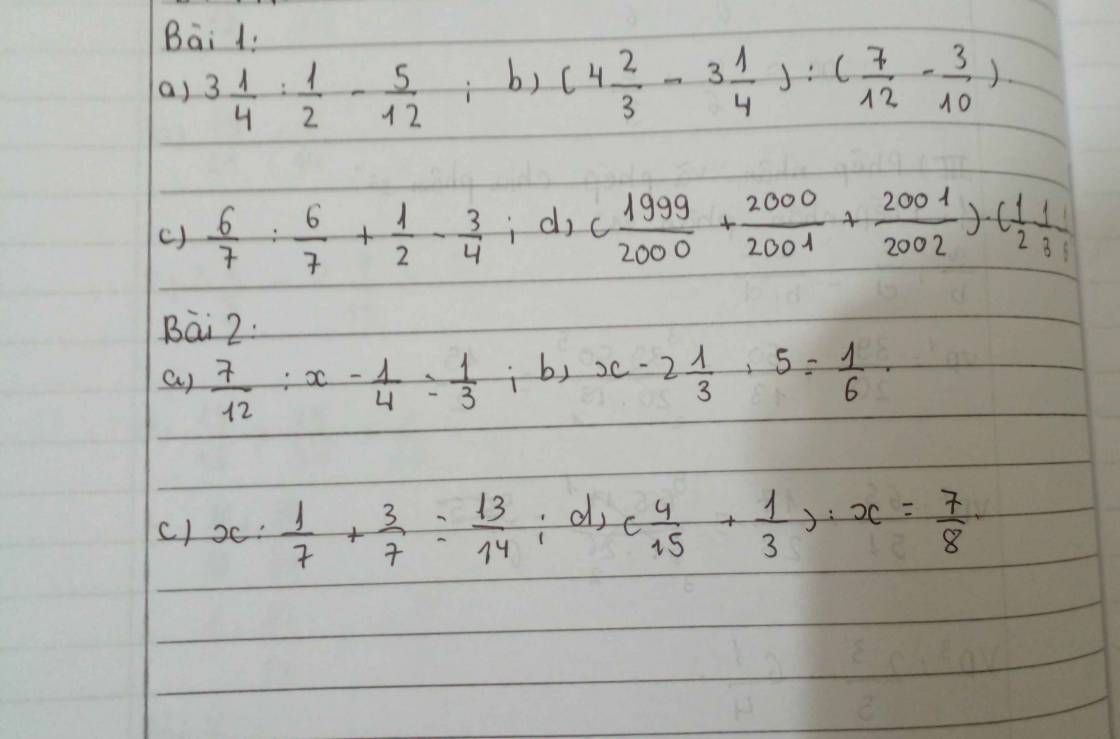 Bài 1:
a) 3 1/4 : 1/2 - 5/12 ; b) (4 2/3 - 3 1/4) : (7/12 - 3/10).
c) 6/7 : 6/7 + 1/2 - 3/4 ; d) (1999/2000 + 2000/2001 + 2001/2002) . (1/2 1/3
Bài 2:
a) 7/12 : x - 1/4 = 1/3 ; b) x - 2 1/3 . 5 = 1/6.
c) x : 1/7 + 3/7 = 13/14 ; d) (4/15 + 1/3) : x = 7/8.